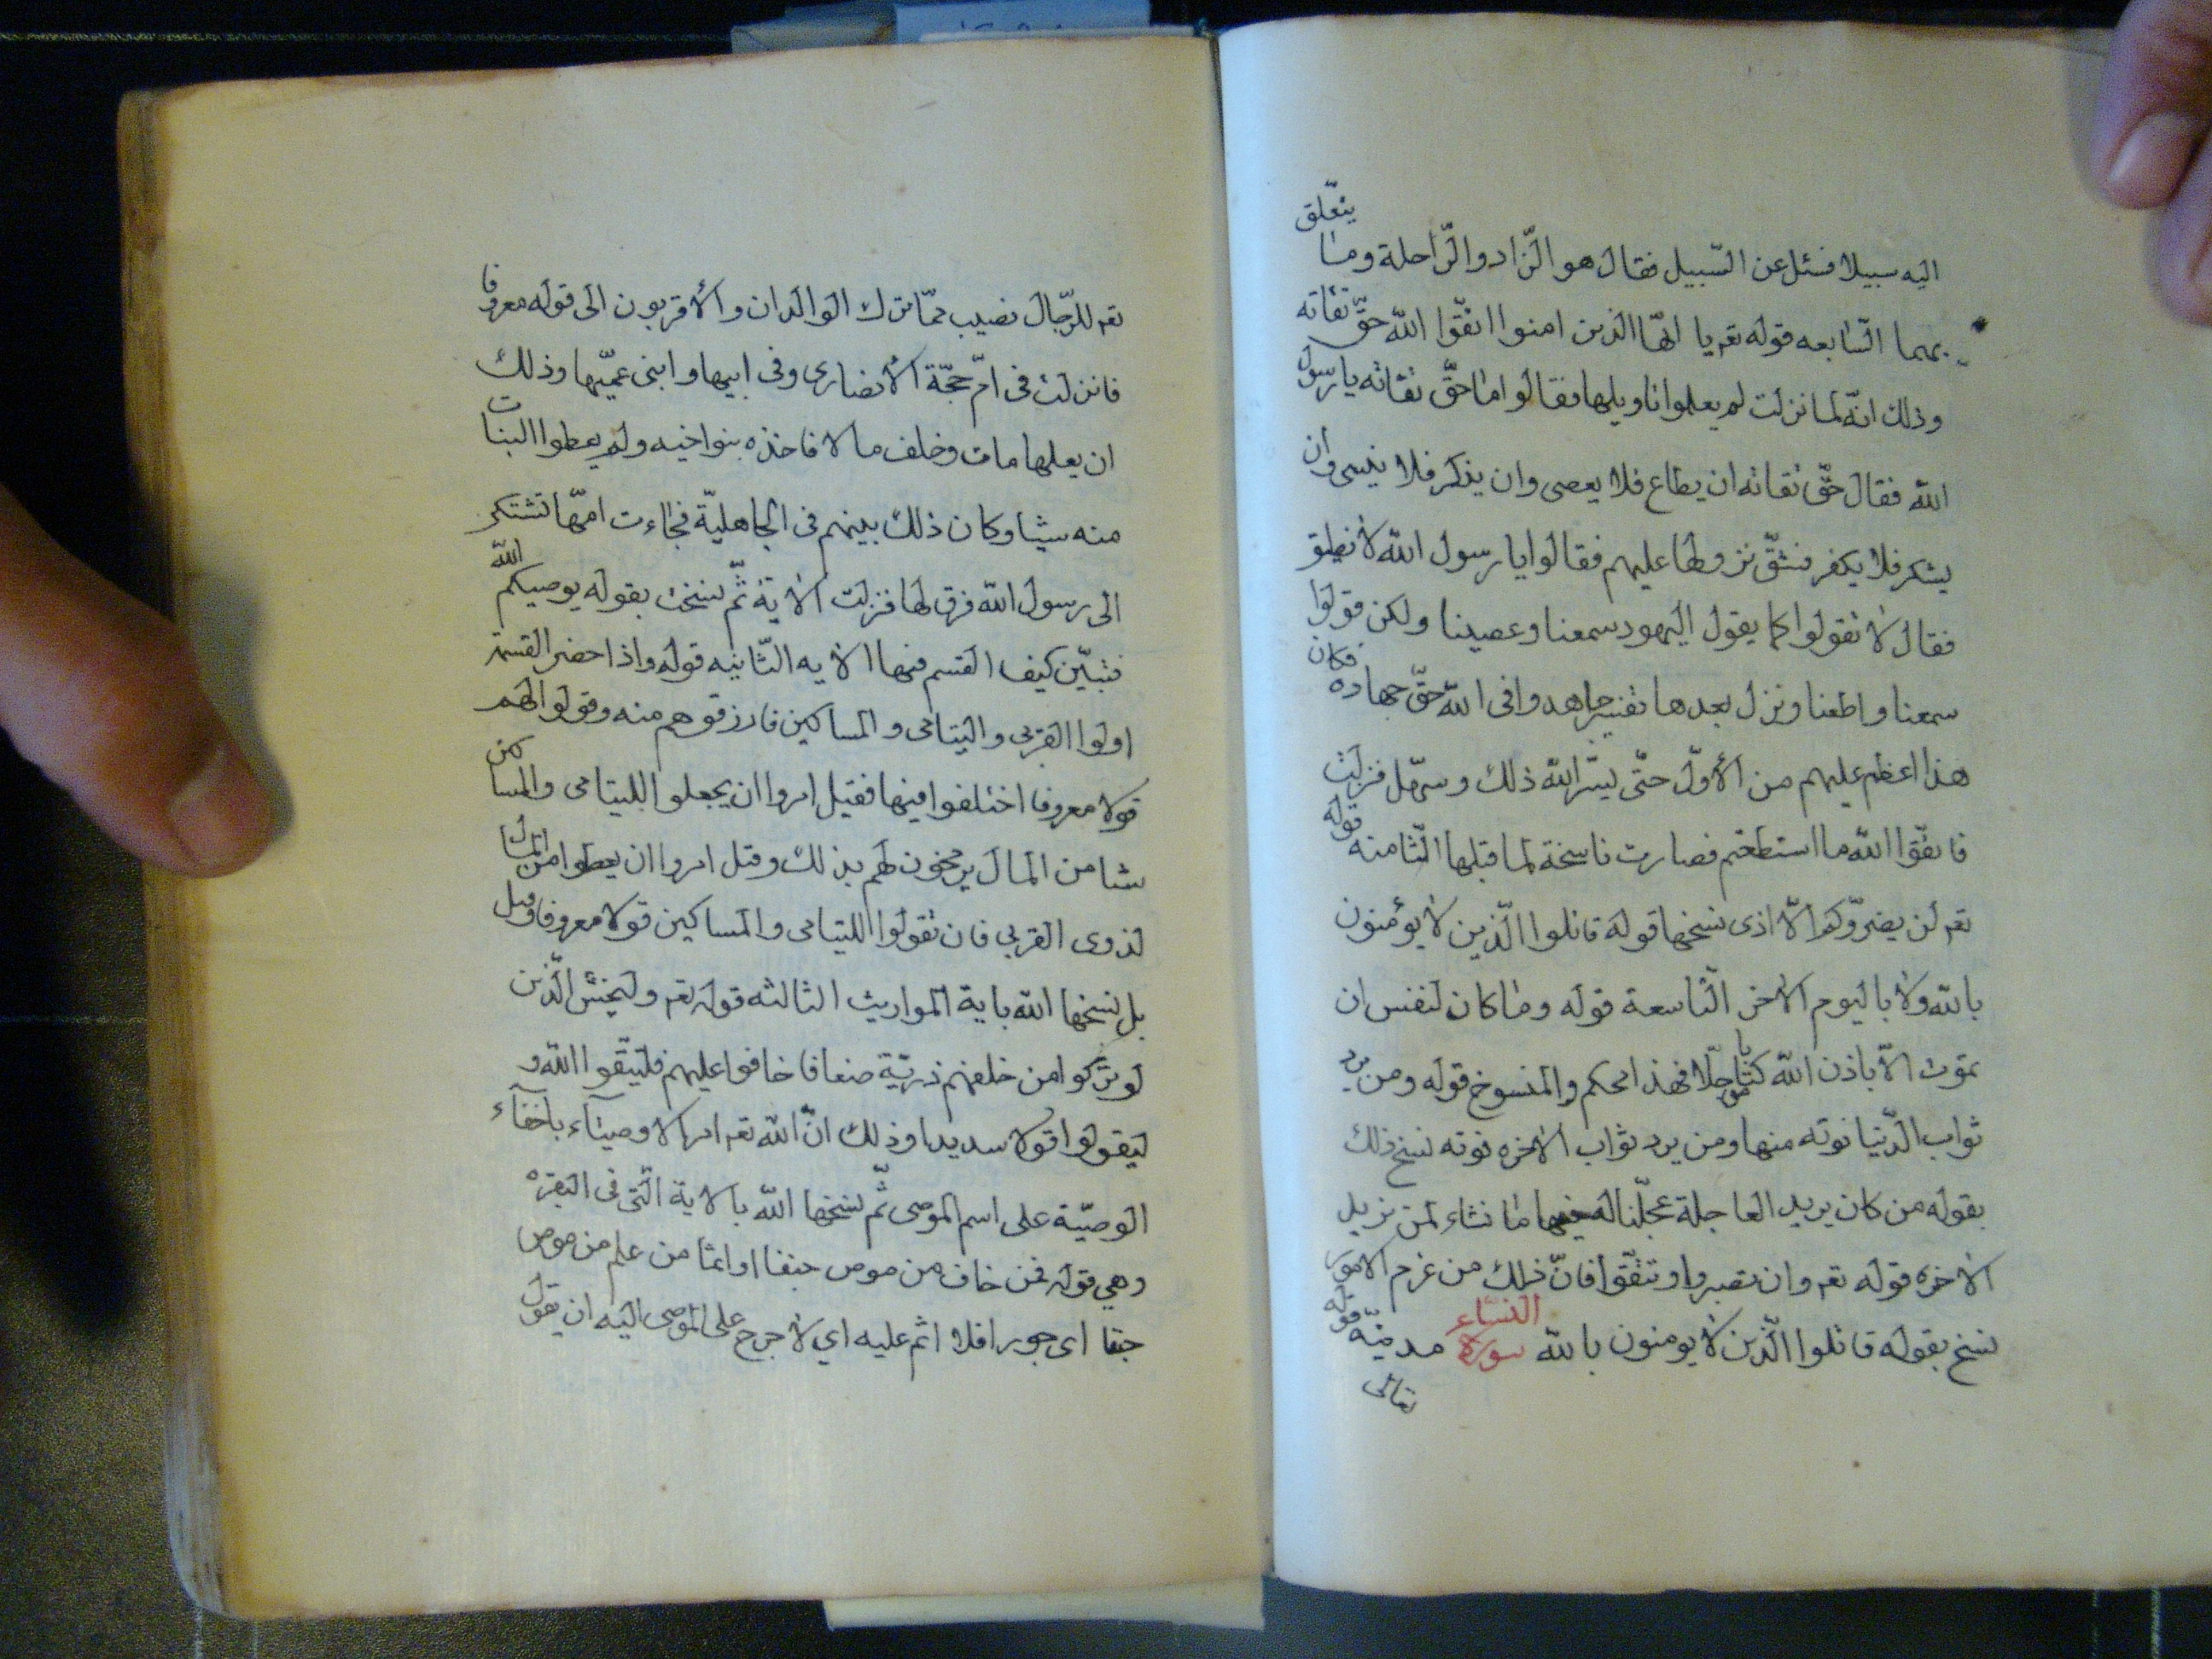 اليه سبيلا فسئل عن السّبيل فقال هو الزّاد والرّاحلة وما يتعلّق
بهما السّابعه قوله تعم يا ايّها الذين امنوا اتقّوا اللّه حقّ تقاته
وذلك انّه لما نزلت لم يعلموا تاويلها فقالوا ما حقّ تقاته يا رسول
اللّه فقال حقّ تقاته ان يطاع فلا يعصى وان يذكر فلا ينسى وان
يشكر فلا يكفر فشقّ نزولها عليهم فقالوا يا رسول اللّه لا نطيق
فقال لا تقولوا كما يقول اليهود سمعنا وعصينا ولكن قولوا
سمعنا واطعنا ونزل بعدها تفسير جاهدوا فى اللّه حقّ جهاده فكان
هذا اعظم عليهم من الأوّل حتّى يسّر اللّه ذلك وسهّل فنزلت
فاتقّوا اللّه ما استطعتم فصارت ناسخة لما قبلها الثّامنه قوله
تعم لن يضرّوكم الّا اذى نسخها قوله قاتلوا الّذين لا يؤمنون
باللّه ولا باليوم الاخر التّاسعة قوله وما كان لنفس ان
تموت الّا باذن اللّه كتابا موجلّا فهذا محكم والمنسوخ قوله ومن يرد
ثواب الدّنيا نوته منها ومن يرد ثواب الاخره نوته نسخ ذلك
بقوله من كان يريد العاجلة عجلّنا له فيها ما نشاء لمن نريد
الاخره قوله تعم وان تصبروا وتتقّوا فانّ ذلك من عزم الامور
نسخ بقوله قاتلوا الّذين لا يومنون باللّه سورة النساء مدنيّه قوله
تعالى
تعم للرّجال نصيب ممّا ترك الوالدان والأقربون الى قوله معروفا
فانزلت فى امّ حجّة الأنصارى وفى ابيها وابنى عميّها وذلك
ان بعلها مات وخلف مالا فاخذه بنو اخيه ولم يعطوا البنات
منه شيئا وكان ذلك بينهم فى الجاهليّة فجاءت امهّا تشتكر
الى رسول اللّه فرق لها فنزلت الاية ثمّ نسخت بقوله يوصيكم اللّه
فتبيّن كيف القسم فيها الايه الثّانيه قوله واذا حضر القسمة
اولوا القربى واليتامى والمساكين فارزقوهم منه وقولوا لهم
قولا معروفا اختلفوا فيها فقيل امروا ان يجعلوا لليتامى والمساكين
شئا من المال يرضخون لهم بذلك وقيل امروا ان يعطوا من المال
لذوى القربى فان تقولوا لليتامى والمساكين قولا معروفا وقيل
بل نسخها اللّه باية المواريث الثالثه قوله تعم وليخش الّذين
لو تركوا من خلفهم ذريّة ضعافا خافوا عليهم فليتّقوا اللّه و
ليقولوا قولا سديدا وذلك انّ اللّه تعم امر الاوصيآء
الوصيّة على اسم الموصى ثمّ نسخها اللّه بالاية التّى فى البقره
وهي قوله فمن خاف من موص جنفا او اثما من علم من موص
جنفا اى جورا فلا اثم عليه اي لا حرج على الموصى اليه ان يقول